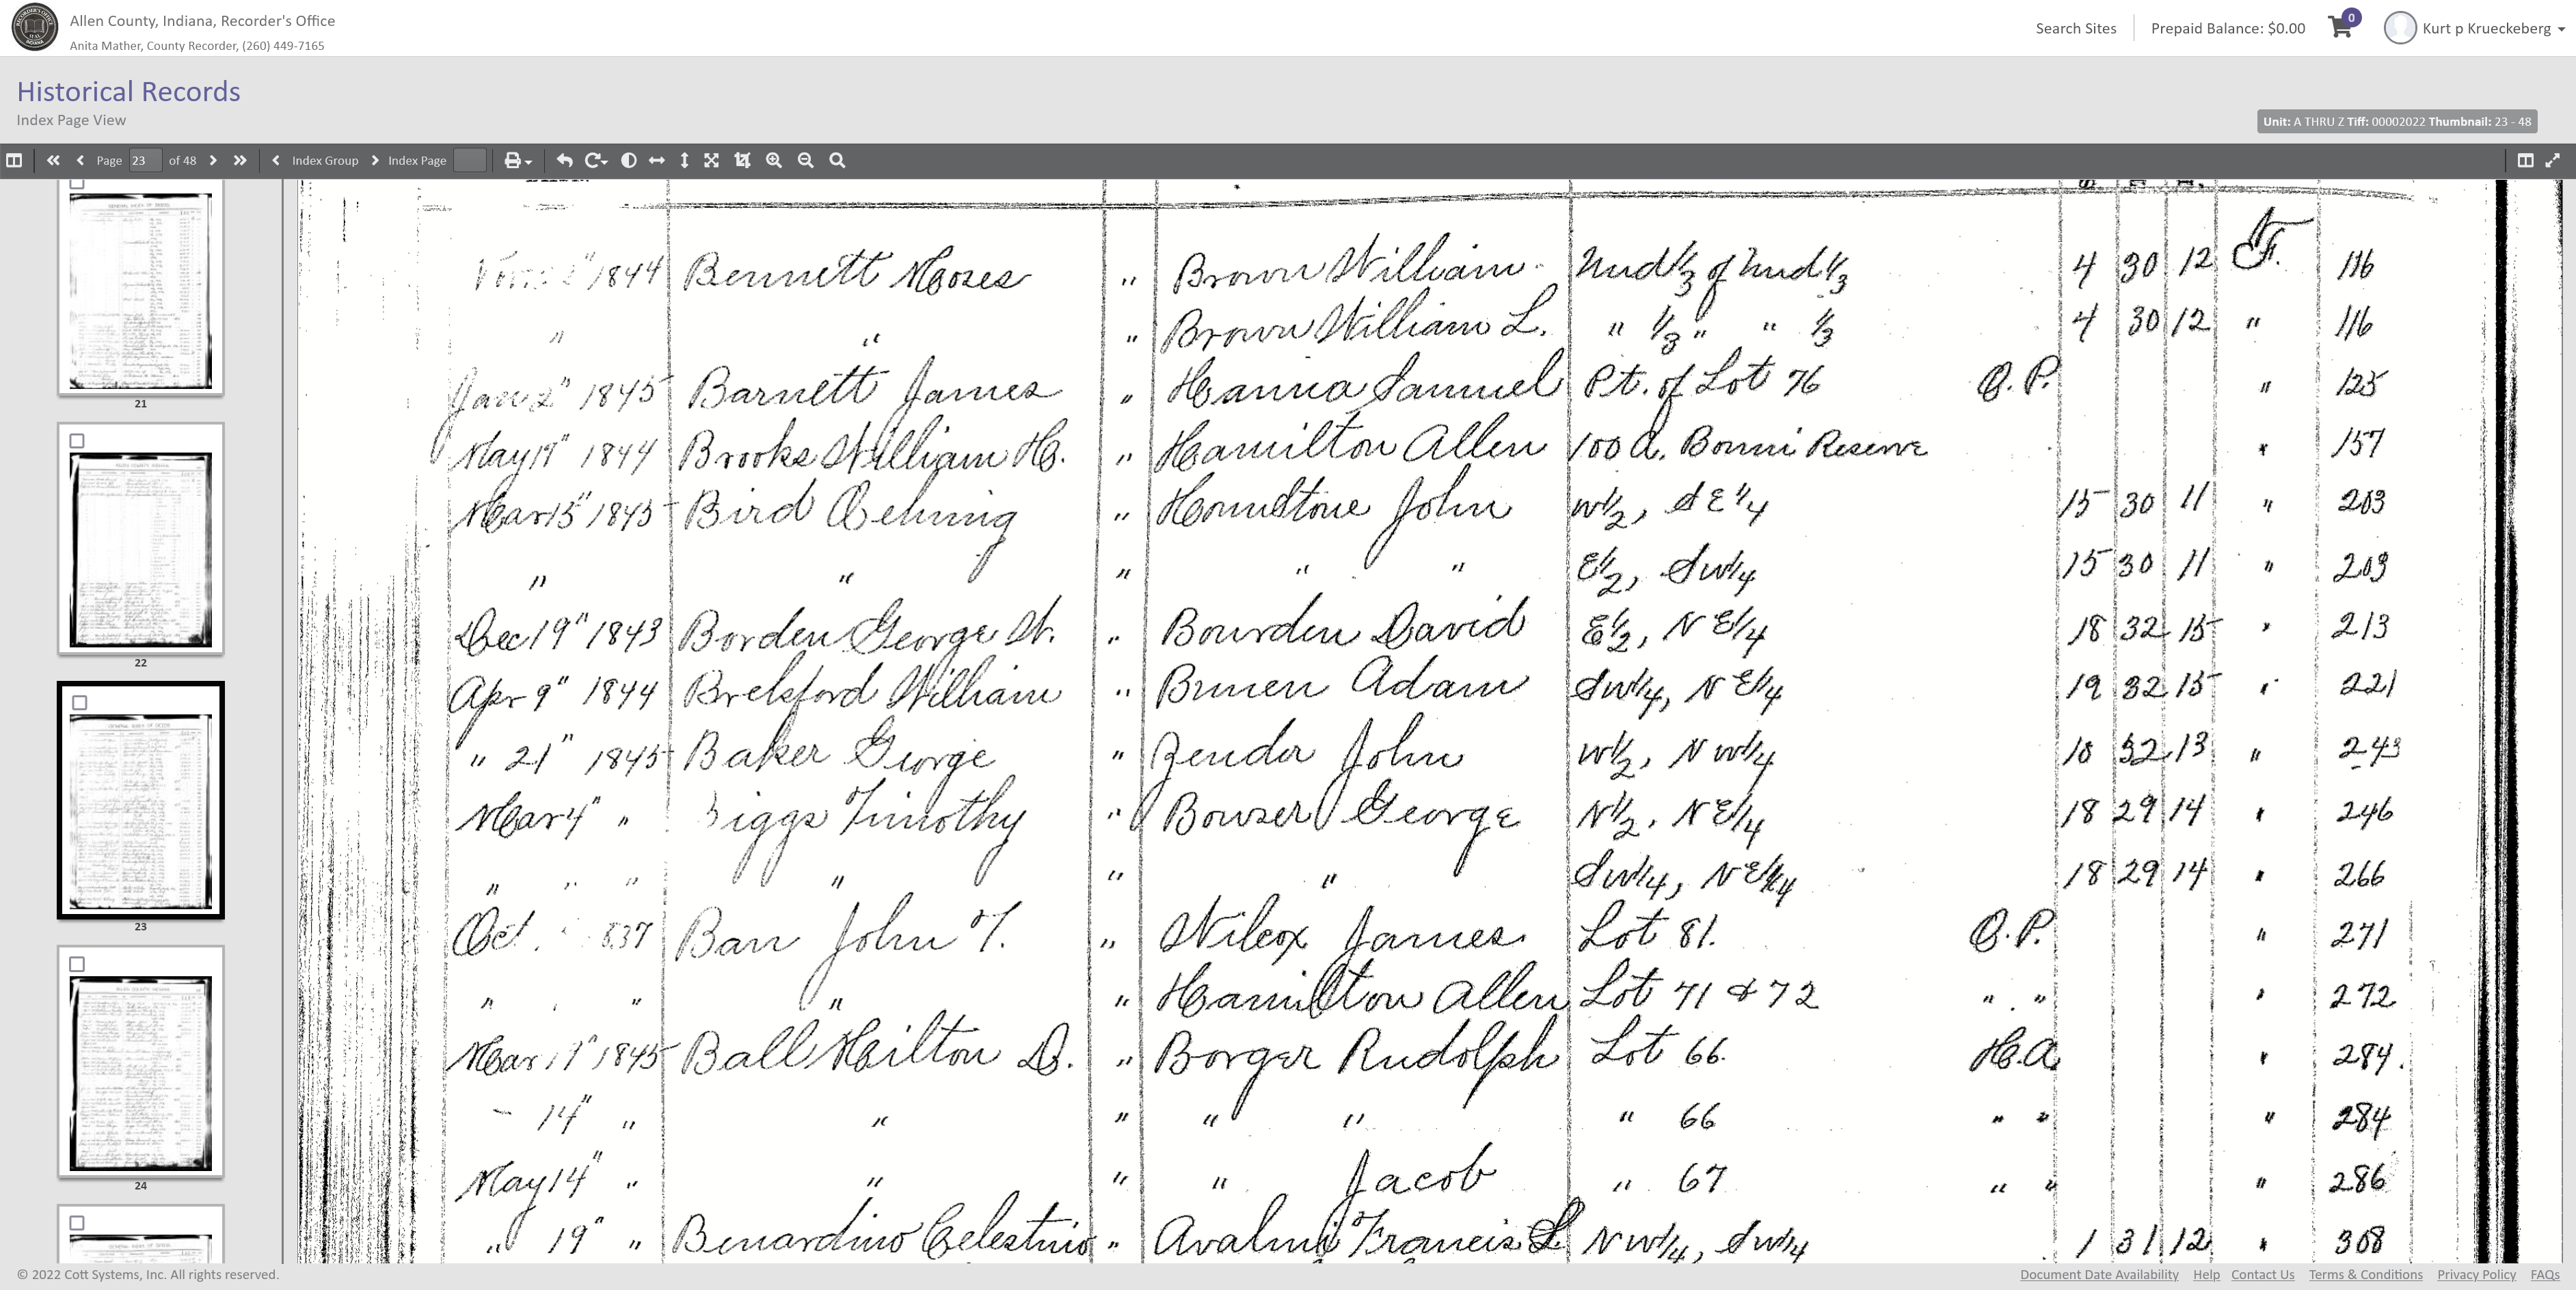 Allen County, Indiana, Recorder's Office
Anita Mather, County Recorder, (260) 449-7165
Search Sites Prepaid Balance: $0.00 0 Kurt p Krueckeberg
Historical Records
Index Page View
Unit: A THRU Z Tiff: 00002022 Thumbnail: 23 - 48
Page 23 of 48 Index Group Index Page
21
22
23
24
1844 Bennett Moses " Brown William Und 1/3 of Und 1/3 4 30 12 F. 116
" " " Brown William L. " 1/3 " " 1/3 4 30 12 " 116
Jan 2" 1845 Barnett James " Hanna Samuel Pt. of Lot 76 O.P. " 125
May 19" 1844 Brooks William H. " Hamilton Allen 100 A. Reserve " 157
Mar 15" 1845 Bird Ochmig " John W1/2, SE1/4 15 30 11 " 203
" " " " " E1/2, SW1/4 15 30 11 " 203
Dec 19" 1843 Borden George W. " Bourden David E1/2, NE1/4 18 32 15 " 213
Apr 9" 1844 Brelsford William " Adam SW1/4, NE1/4 19 32 15 " 221
" 21" 1845 Baker George " John W1/2, NW1/4 10 32 13 " 243
Mar 4" " iggs Timothy " Bowser George N1/2, NE1/4 18 29 14 " 246
" " " " " " SW1/4, NE1/4 18 29 14 " 266
Oct. 837 Barr John T. " Wilcox James Lot 81. O.P. " 271
" " " " Hamilton Allen Lot 71 & 72 " " " 272
Mar 1845 Ball Milton D. " Borger Rudolph Lot 66. H.A. " 284.
14" " " " " " " 66 " " " 284
May 14" " " " " Jacob " 67 " " " 286
" 19" " Benardino Celestino " Francis L. NW1/4, SW1/4 1 31 12 " 308
© 2022 Cott Systems, Inc. All rights reserved.
Document Date Availability Help Contact Us Terms & Conditions Privacy Policy FAQs